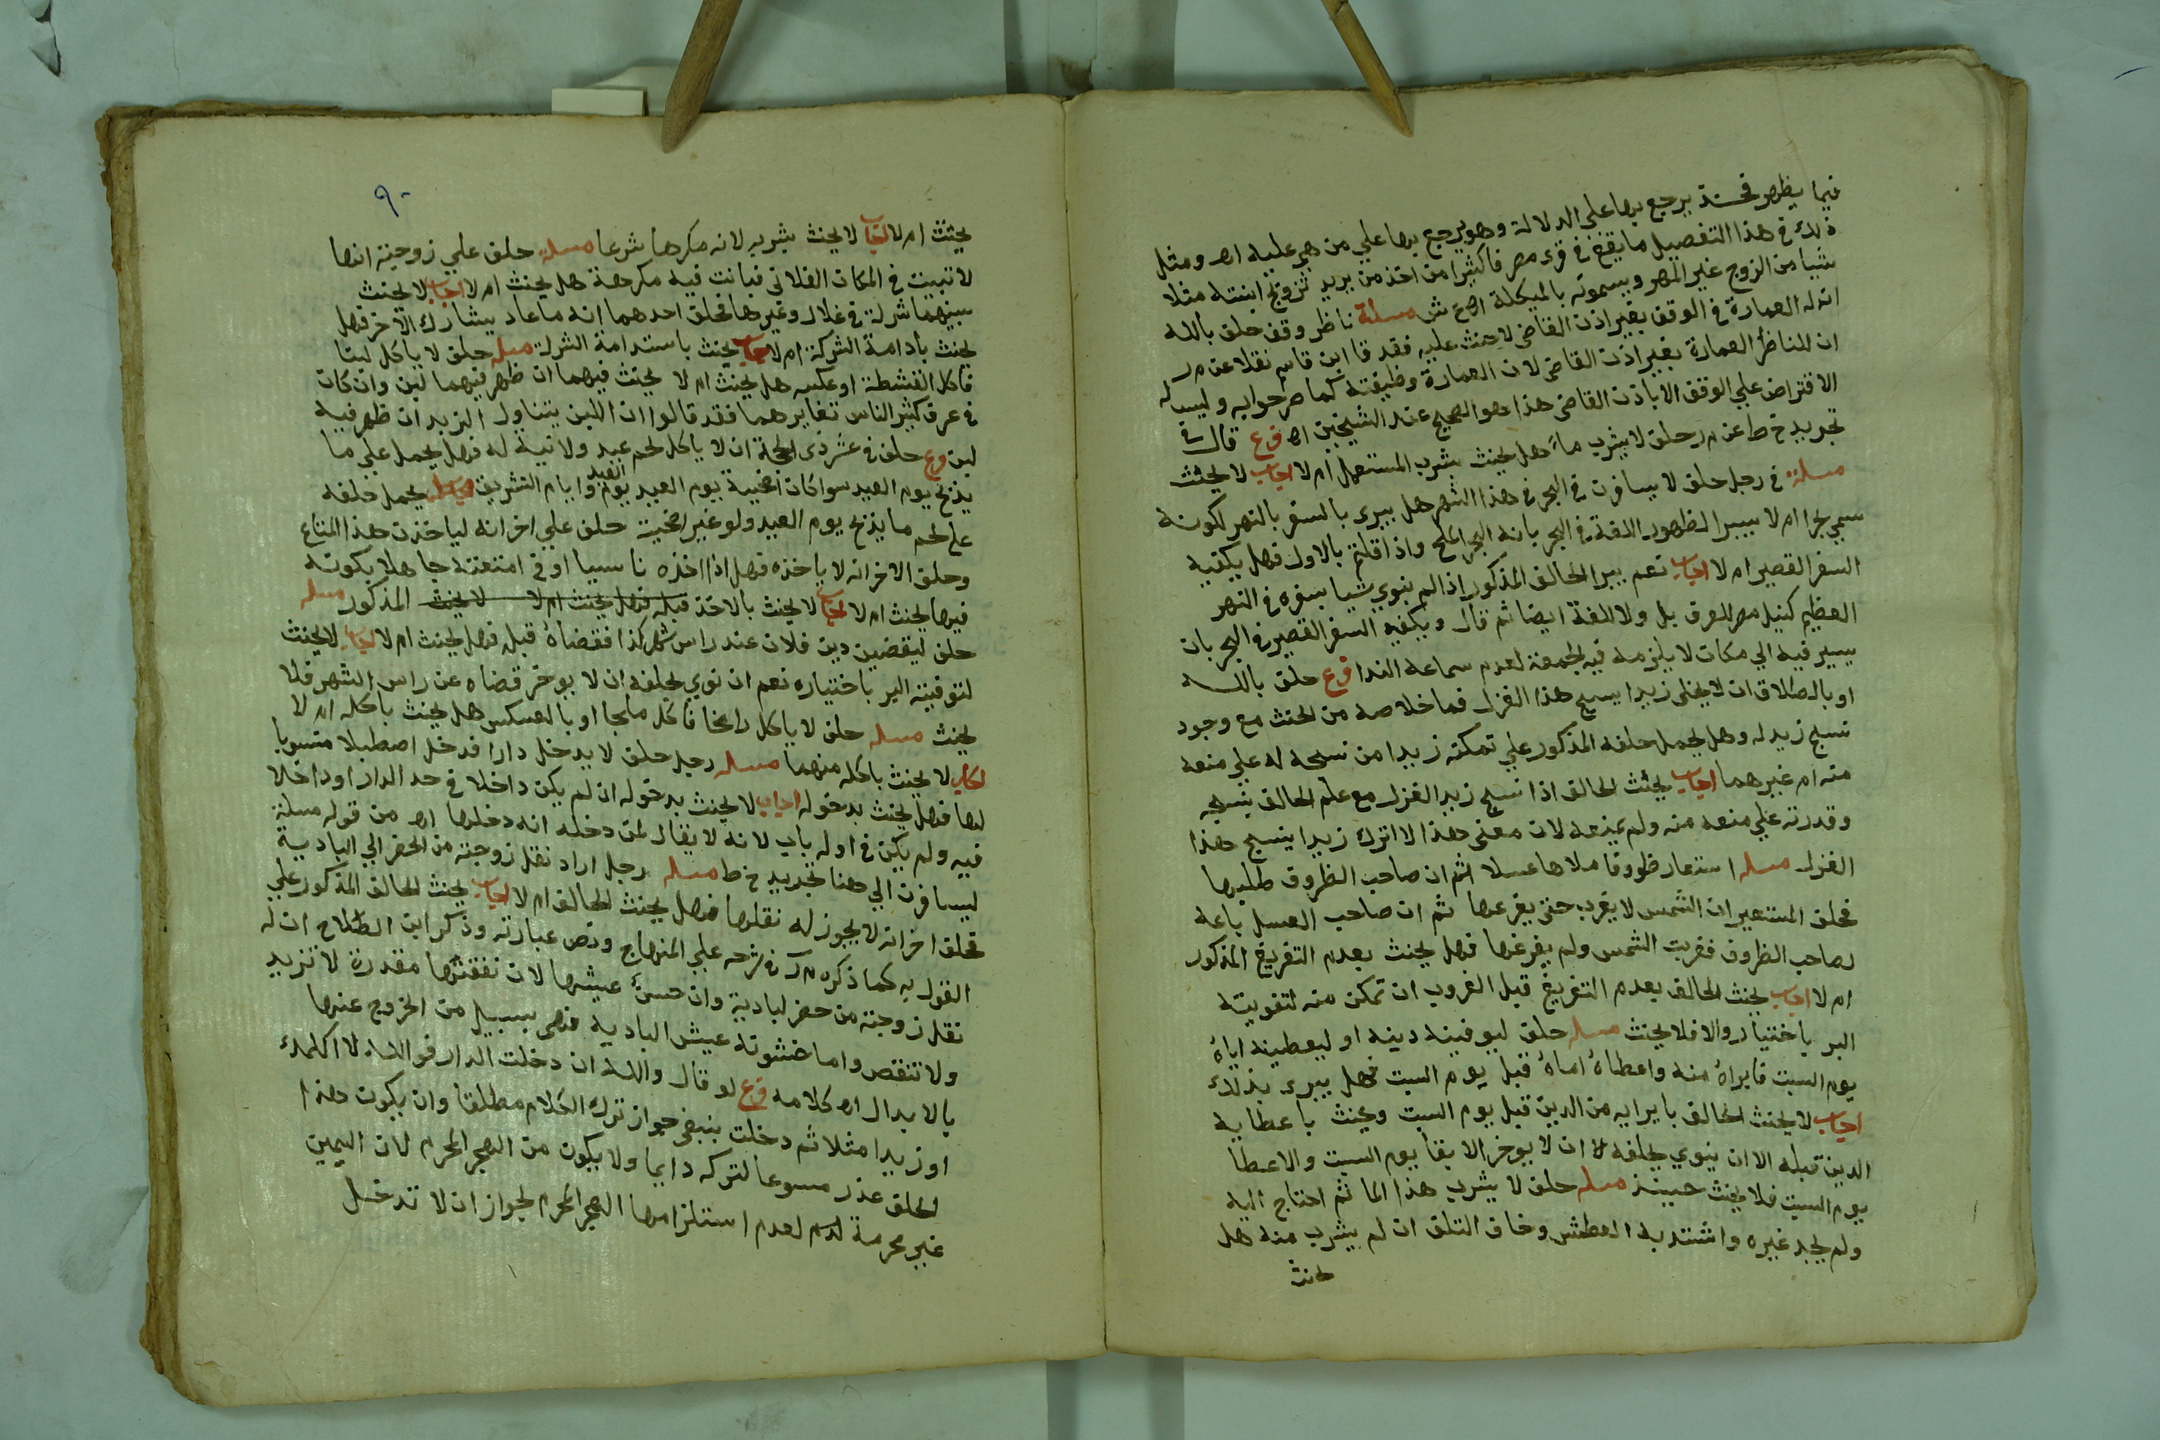 فيما يظهر فحـ ـذ يرجع بها على الدلالة وهو يرجع بها علي من هي عليه اه ومثل
ذلك في هذا التفصيل ما يقع في قرى مصر فا كثيرا من اخذ من يريد تزوج ابنته مثلا
شيا من الزوج غير المهر ويسمونه بالميكلة اه ع ش مسئلة ناظر وقف حلق بالله
ان له العمارة في الوقف بغير اذن القاضي لا حنث عليه فقد قا ابن قاسم نقلا عن م ر
ان للناظر العمارة بغير اذن القاضي لان العمارة وظيفته كما صرحوا به وليس له
الاقتراض علي الوقف الا باذن القاضي هذا هو الصحيح عند الشيخين اه فرع قال في
تجريد خ ط عن م ر حلق لا يشرب ماء هل يحنث بشرب المستعمل ام لا اجاب لا يحنث
مسلة في رجل حلق لا يسافرن في البحر في هذا الشهر هل يبرى بالسفر بالنهر لكونه
سمي بحرا ام لا يبر الظهور اللغة في البحر بانه البحر الملح واذا قلتم بالاول فهل يكفيه
السفر القصير ام لا اجاب نعم يبر الحالف المذكور اذا لم ينوي شيا بسفره في النهر
العظيم كنيل مصر للعرف بل وللغة ايضا ثم قال ويكفيه السفر القصير في البحر بان
يسير فيه الي مكان لا يلزمه فيه الجمعة لعدم سماعه الندا فرع حلق بالله
او بالطلاق ان لا يخلي زيدا ينسج هذا الغزل فما خلاصه من الحنث مع وجود
نسج زيد له وهل يحمل حلفه المذكور علي تمكنه زيدا من نسجه له علي منعه
منه ام غيرهما اجاب يحنث الحالف اذا نسج زيد الغزل مع علم الحالف بنسجه
وقدرته علي منعه منه ولم يمنعه لان معنى هذا لا اترك زيدا ينسج هذا
الغزل مسله استعار ظروفا ملاها عسلا ثم ان صاحب الظروف طلبها
فحلق المستعير ان الشمس لا يغرب حتى يفرغها ثم ان صاحب العسل باعه
لصاحب الظروف فغربت الشمس ولم يفرغها فهل يحنث بعدم التفريغ المذكور
ام لا اجاب يحنث الحالف بعدم التفريغ قبل الغروب ان تمكن منه لتفويته
البر باختياره والا فلا يحنث مسله حلق ليوفينه دينه او ليعطينه اياه
يوم السبت فابراه منه واعطاه اياه قبل يوم السبت فهل يبرى بذلك
اجاب لا يحنث الحالف بابرايه من الدين قبل يوم السبت ويحنث باعطايه
الدين قبله الا ان ينوي بحلفه ان لا يوخر الايفا يوم السبت والاعطا
يوم السبت فلا يحنث حينئذ مسله حلق لا يشرب هذا الما ثم احتاج اليه
ولم يجد غيره واشتد به العطش وخاف التلف ان لم يشرب منه هل
يحنث
٩٠
يحنث ام لا اجاب لا يحنث بشربه لانه مكرها شرعا مسله حلق علي زوجته انها
لا تبيت في المكان الفلاني فباتت فيه مكرهة هل يحنث ام لا اجاب لا يحنث
بينهما شركة في غلال وغيرها فحلق احدهما انه ما عاد يشارك الاخر فهل
يحنث بادامة الشركة ام لا اجاب يحنث باستدامة الشركة مسله حلق لا ياكل لبنا
فاكل القشطة او عكسه هل يحنث ام لا يحنث فيهما ان ظهر فيهما لبن وان كان
في عرف كثير الناس تغايرهما فقد قالوا ان اللبن يتناول الزبد ان ظهر فيه
لبن فرع حلق في عشر ذي الحجة ان لا ياكل لحم عيد ولا نية له فهل يحمل علي ما
يذبح يوم العيد سوا كان اضحية يوم العيد يوم العيد وايام التشريق يحمل حلفه
على لحم ما يذبح يوم العيد ولو غير اضحية حلق علي اخر انه لياخذن هذا المتاع
وحلق الاخر انه لا ياخذه فهل اذا اخذه ناسيا او في امتعته جاهلا بكونه
فيها يحنث ام لا اجاب لا يحنث بالاخذ قبله فهل يحنث ام لا لا يحنث المذكور مسله
حلق ليقضين دين فلان عند راس شهر كذا فقضاه قبله فهل يحنث ام لا اجاب لا يحنث
لتفويته البر باختياره نعم ان نوي بحلفه ان لا يوخر قضاه عن راس الشهر فلا
يحنث مسله حلق لا ياكل رانخا فاكل مالحا او بالعكس هل يحنث باكله ام لا
اجاب لا يحنث باكله منهما مسله رجل حلق لا يدخل دارا فدخل اصطبلا منسوبا
لها فهل يحنث بدخوله اجاب لا يحنث بدخوله ان لم يكن داخلا في حد الدار او داخلا
فيه ولم يكن في اوله باب لانه لا يقال لمن دخله انه دخلها اه من قوله مسلة
ليسافرن الي هنا تجريد خ ط مسله رجل اراد نقل زوجته من الحضر الي البادية
فحلق اخر انه لا يجوز له نقلها فهل يحنث الحالف ام لا اجاب يحنث الحالف المذكور علي
القول به كما ذكره م ر في شرحه علي المنهاج ونص عبارته وذكر ابن الصلاح ان له
نقل زوجته من حضر لبادية وان خشن عيشها لان نفقتها مقدرة لا تزيد
ولا تنقص واما خشونة عيش البادية فهي بسبيل من الخروج عنها
بالابدال اه كلامه فرع لو قال والله ان دخلت الدار فوالله لا اكلمك
او زيدا مثلا ثم دخلت ينبغي جواز ترك الكلام مطلقا وان يكون هذا
الحلق عذر مسوغا لتركه دايما ولا يكون من الهجر المحرم لان اليمين
غير محرمة لعدم استلزامها الهجر المحرم لجواز ان لا تدخل